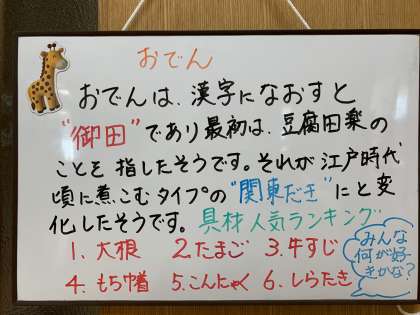 おでん
おでんは、漢字になおすと
"御田"であり最初は、豆腐田楽の
ことを指したそうです。それが江戸時代
頃に煮こむタイプの"関東だき"にと変
化したそうです。具材人気ランキング
1、大根 2、たまご 3、牛すじ
4、もち巾着 5、こんにゃく 6、しらたき
みんな
何が好
きかな?